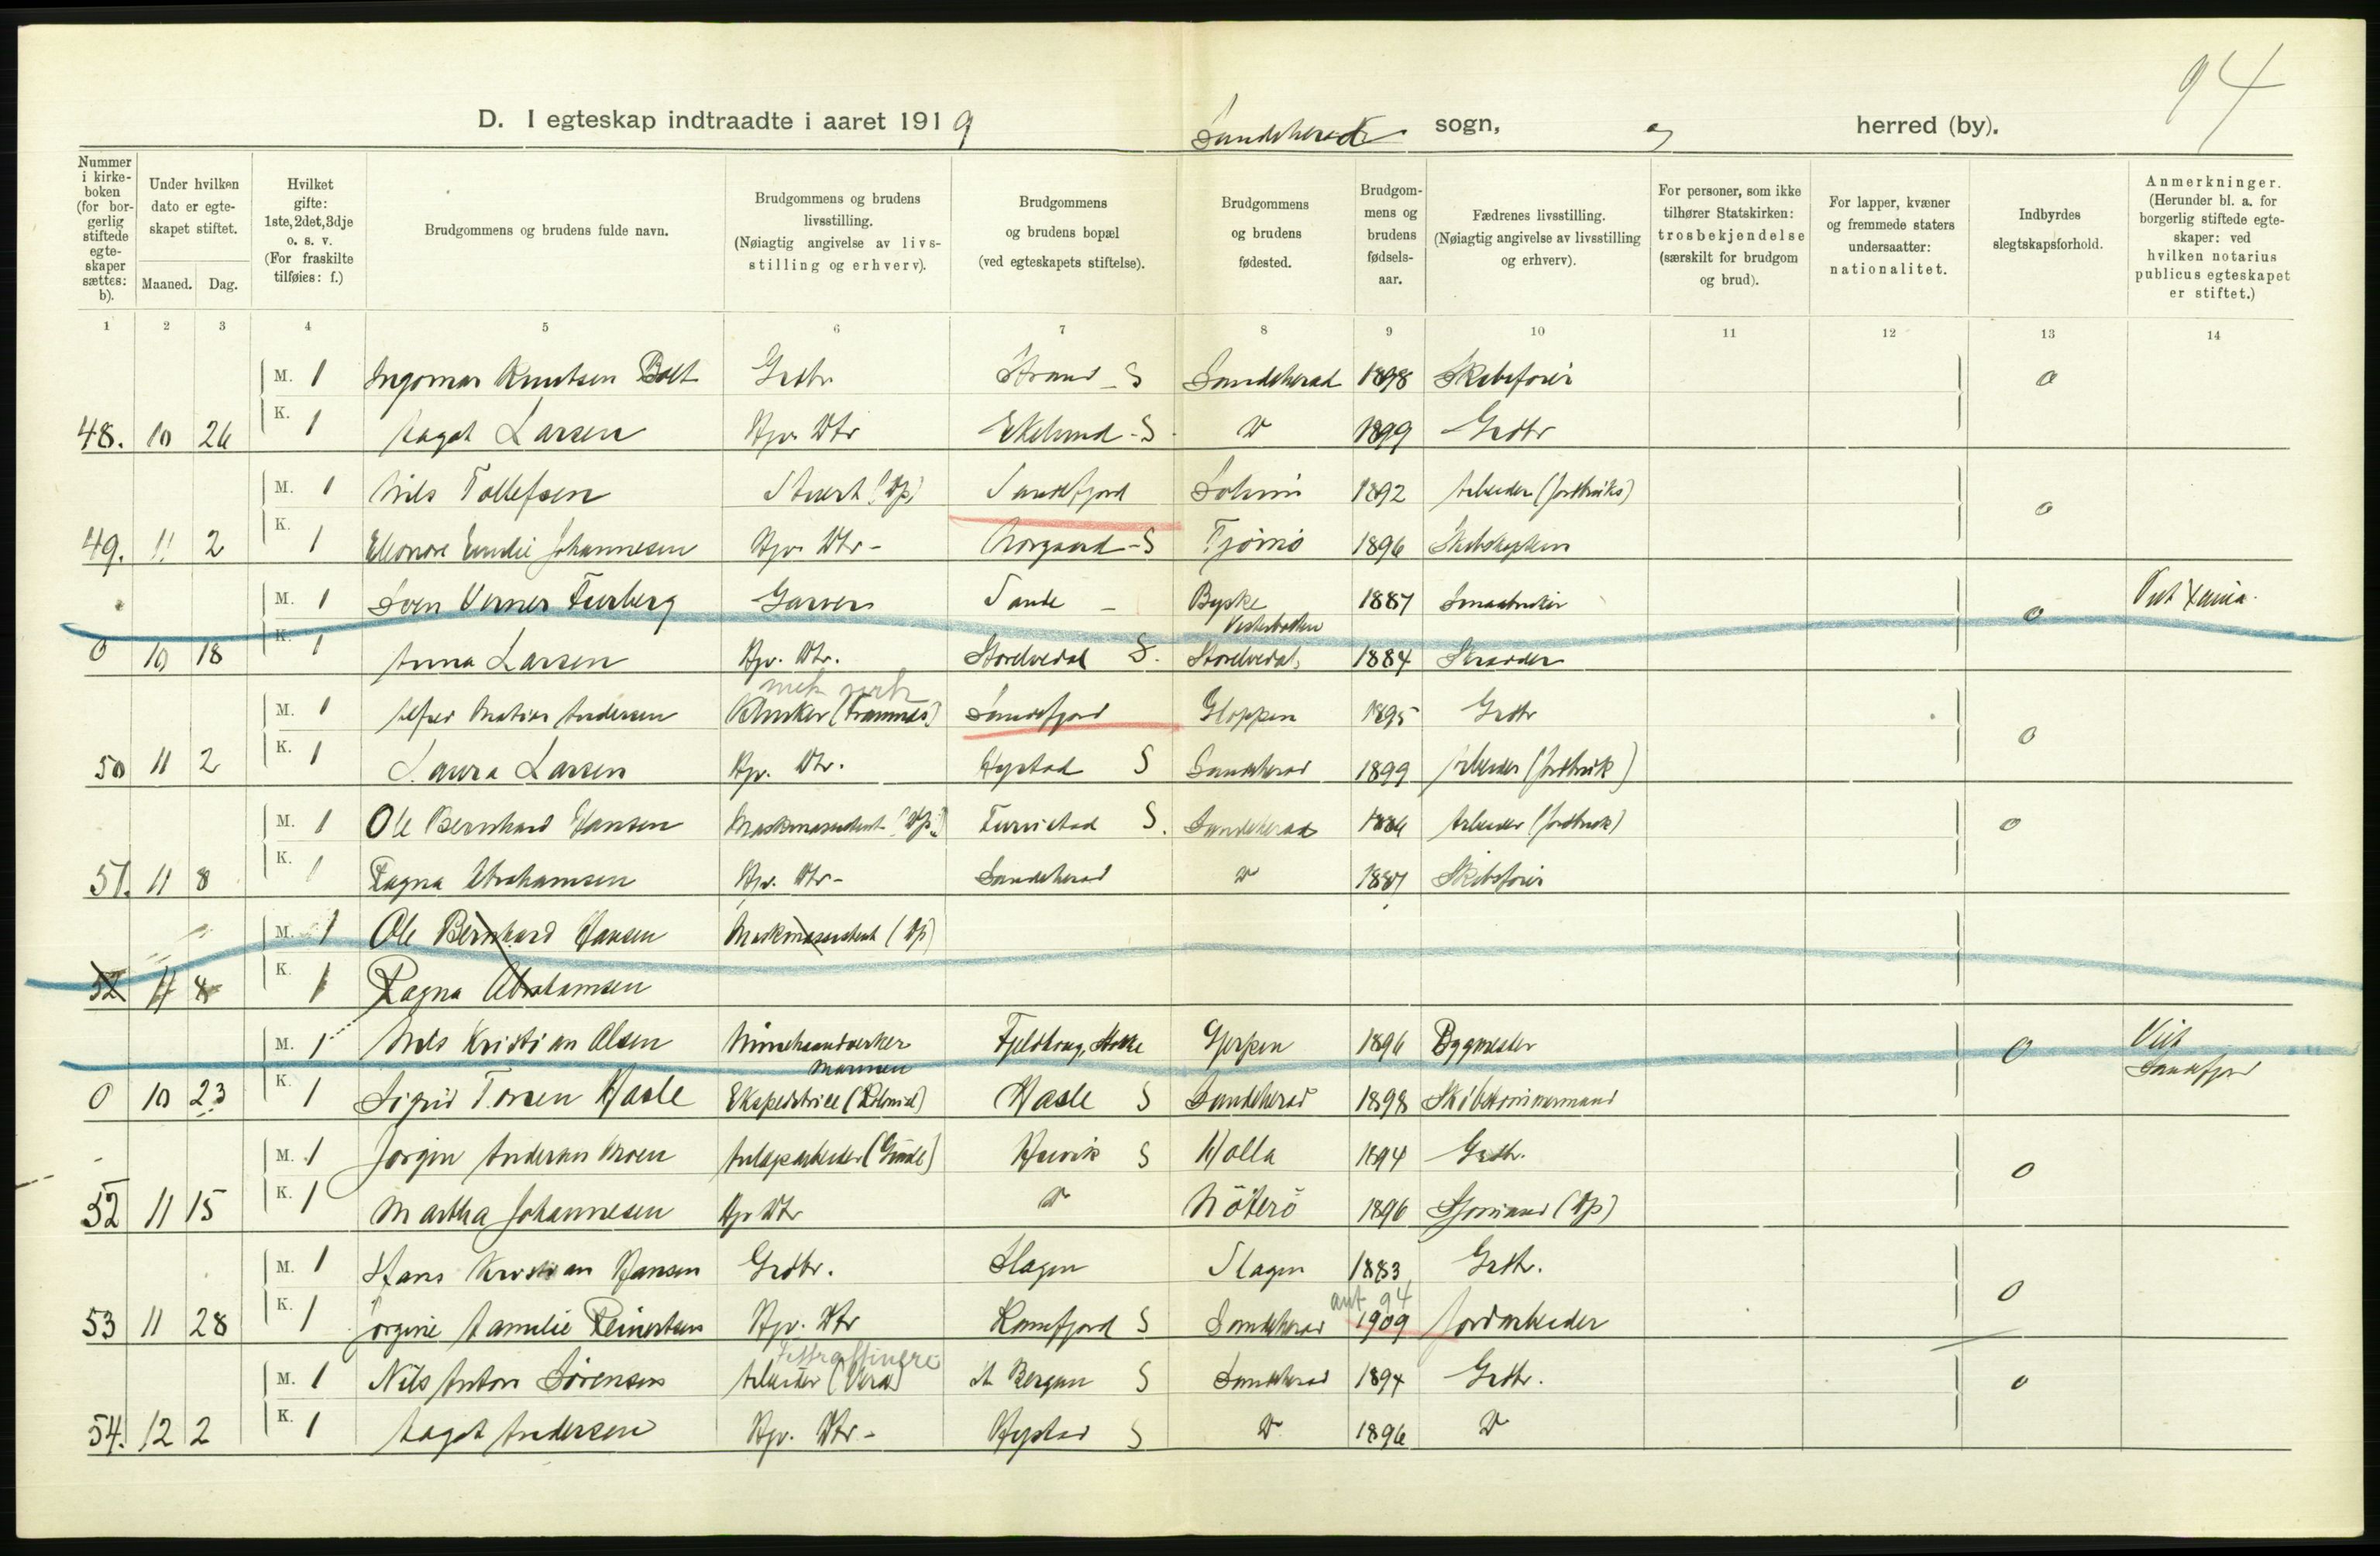 94
D. I egteskap indtraadte i aaret 1919 Sandeherad sogn, herred (by).
Nummer i kirkeboken (for borgerlig stiftede egteskaper sættes: b).
Under hvilken dato er egteskapet stiftet.
Maaned. Dag.
Hvilket gifte: 1ste, 2det, 3dje o. s. v. (For fraskilte tilføies: f.)
Brudgommens og brudens fulde navn.
Brudgommens og brudens livsstilling. (Nøiagtig angivelse av livsstilling og erhverv).
Brudgommens og brudens bopæl (ved egteskapets stiftelse).
Brudgommens og brudens fødested.
Brudgommens og brudens fødselsaar.
Fædrenes livsstilling. (Nøiagtig angivelse av livsstilling og erhverv).
For personer, som ikke tilhører Statskirken: trosbekjendelse (særskilt for brudgom og brud).
For lapper, kvæner og fremmede staters undersaatter: nationalitet.
Indbyrdes slegtskapsforhold.
Anmerkninger. (Herunder bl. a. for borgerlig stiftede egteskaper: ved hvilken notarius publicus egteskapet er stiftet.)
1 2 3 4 5 6 7 8 9 10 11 12 13 14
M. 1 Ingomar Knutsen Bolt Grdbr Strand - S Sandeherad 1898 Skibsfører 0
48. 10 26 K. 1 Aagot Larsen Hjv. Dtr Ekelund - S. D 1899 Grdbr
M. 1 Nils Tollefsen Stuert (Dp) Sandefjord Solum 1892 Arbeider (jordbruks) 0
49. 11 2 K. 1 Eleonore Emilie Johannesen Hjv. Dtr - Norgaard - S Tjømø 1896 Skibskaptein
M. 1 Sven Verner Furberg Garver Sande - Byske Vesterbotten 1887 Smaabruker 0 Viet Xania.
0 10 18 K. 1 Anna Larsen Hjv. Dtr. Storelvedal S. Storelvedal 1884 Skrædder
mek verk
M. 1 Alfred Matias Andersen Klinker (Framnæs) Sandefjord Gloppen 1895 Grdbr 0
50 11 2 K. 1 Laura Larsen Hjv. Dtr. Hystad S Sandeherad 1899 Arbeider (jordbruk)
M. 1 Ole Bernhard Hansen Maskinassistent (Dp.) Furustad S. Sandeherad 1886 Arbeider (jordbruk) 0
51. 11 8 K. 1 Ragna Abrahamsen Hjv. Dtr - Sandeherad D 1887 Skibsfører
M. 1 Ole Bernhard Hansen Maskinassistent (Dp)
52 11 8 K. 1 Ragna Abrahamsen
M. 1 Nils Kristian Olsen Minehaandverker Marinen Fjeldvang, Stokke Gjerpen 1896 Bygmester 0 Viet Sandefjord
0 10 23 K. 1 Sigrid Torsen Hasle Ekspeditrice (Kolonial) Hasle S Sandeherad 1898 Skibstømmermand
M. 1 Jørgen Andersen Moen Anlægsarbeider Huvik S Holla 1894 Grdbr. 0
52 11 15 K. 1 Martha Johannesen Hjv Dtr D Nöterö 1896 Sjømand (Dp)
M. 1 Hans Kristian Hansen Grdbr. Slagen Slagen 1883 Grdbr. 0
ant 94
53 11 28 K. 1 Jørgine Amalie Reinertsen Hjv. Dtr Ranefjord S Sandeherad 1909 Jordarbeider
Fettraffineri
M. 1 Nils Anton Sørensen Arbeider (Vera) St. Bergan S Sandeherad 1894 Grdbr. 0
54. 12 2 K. 1 Aagot Andersen Hjv. Dtr - Hystad S D 1896 D